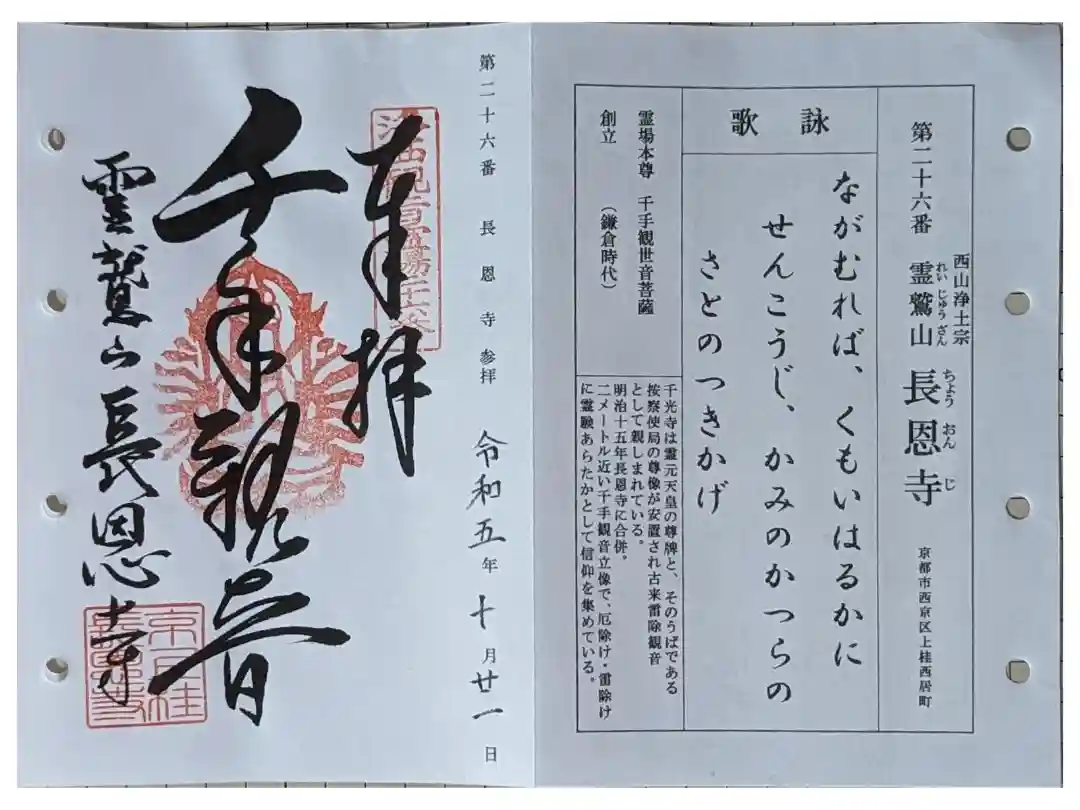 第二十六番 西山浄土宗 霊鷲山 長恩寺 京都市西京区上桂西居町
れいじゅうざん ちょうおんじ
詠歌
ながむれば、くもいはるかに
せんこうじ、かみのかつらの
さとのつきかげ
霊場本尊 千手観世音菩薩
創立 （鎌倉時代）
千光寺は霊元天皇の尊牌と、そのうばである
按察使局の尊像が安置され古来雷除観音
として親しまれている。
明治十五年長恩寺に合併。
二メートル近い千手観音立像で、厄除け・雷除け
に霊験あらたかとして信仰を集めている。
第二十六番 長恩寺参拝 令和五年十月廿一日
奉拝
千手観音
霊鷲山長恩寺